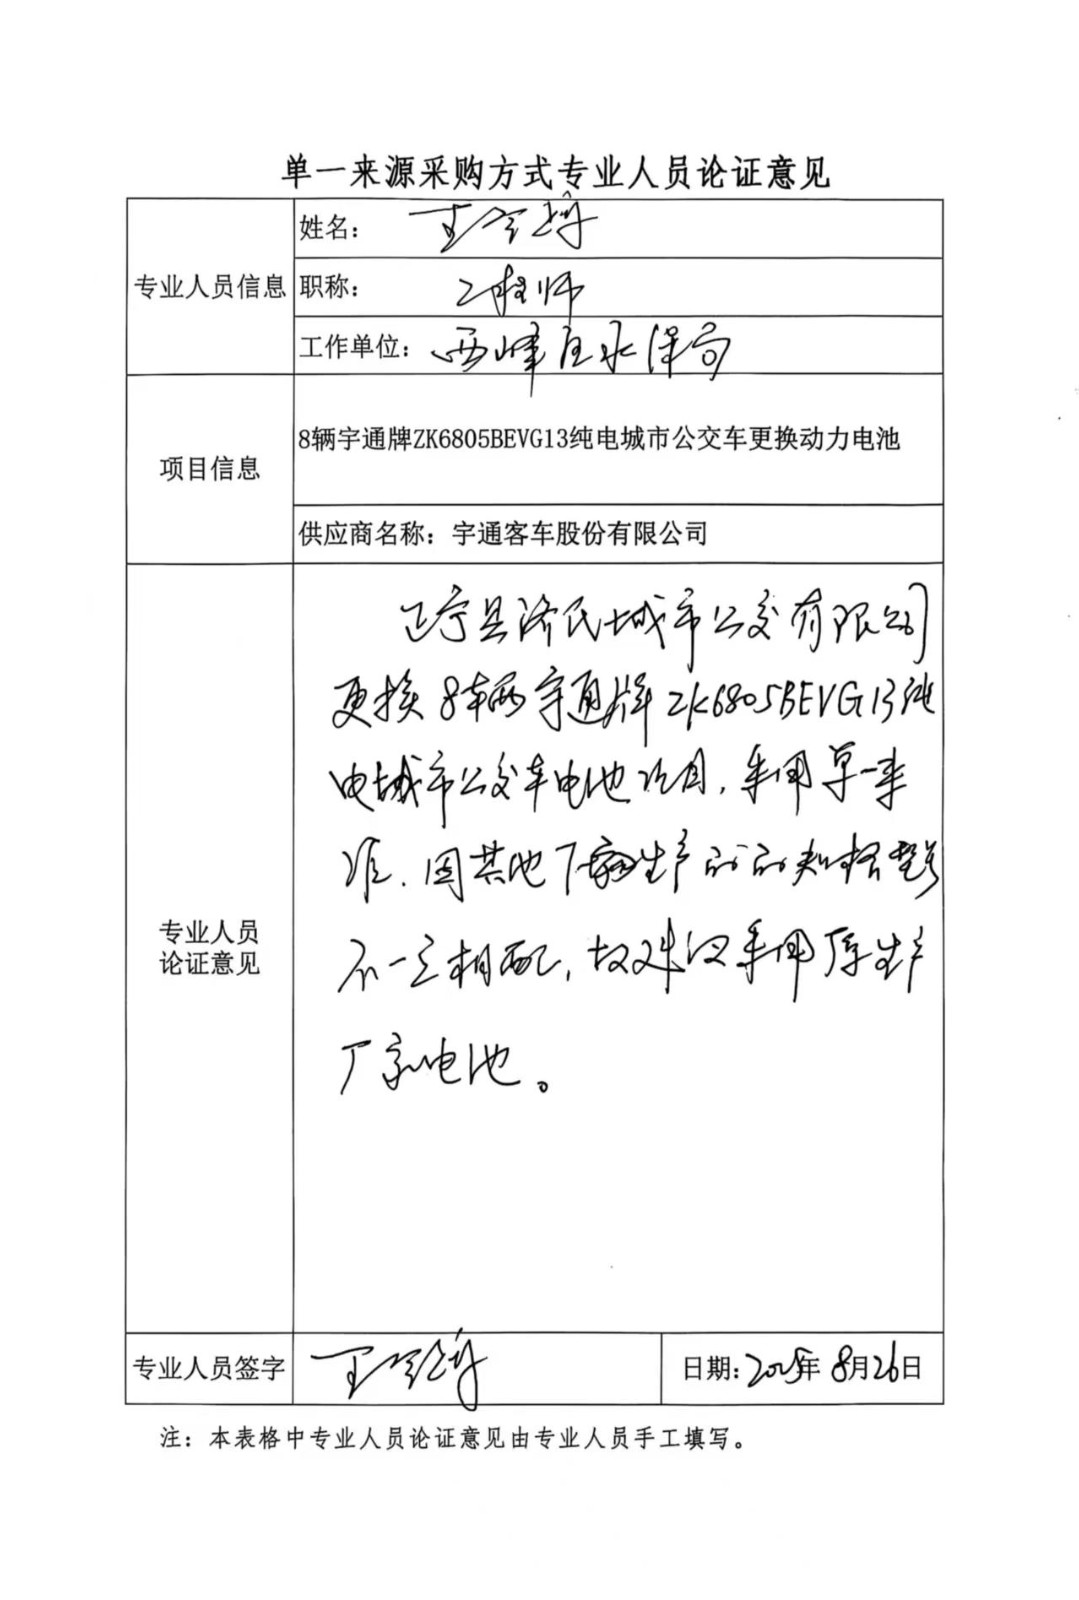 单一来源采购方式专业人员论证意见
专业人员信息
姓名：王
职称：工程师
工作单位：西峰区水保局
项目信息
8辆宇通牌ZK6805BEVG13纯电城市公交车更换动力电池
供应商名称：宇通客车股份有限公司
专业人员
论证意见
正宁县济民城市公交有限公司
更换8辆宇通牌ZK6805BEVG13纯
电城市公交车电池项目，采用单一来
源，因其他厂家生产的的规格型号
不一定相配，故建议采用原生产
厂家电池。
专业人员签字
王
日期：2025年8月26日
注：本表格中专业人员论证意见由专业人员手工填写。